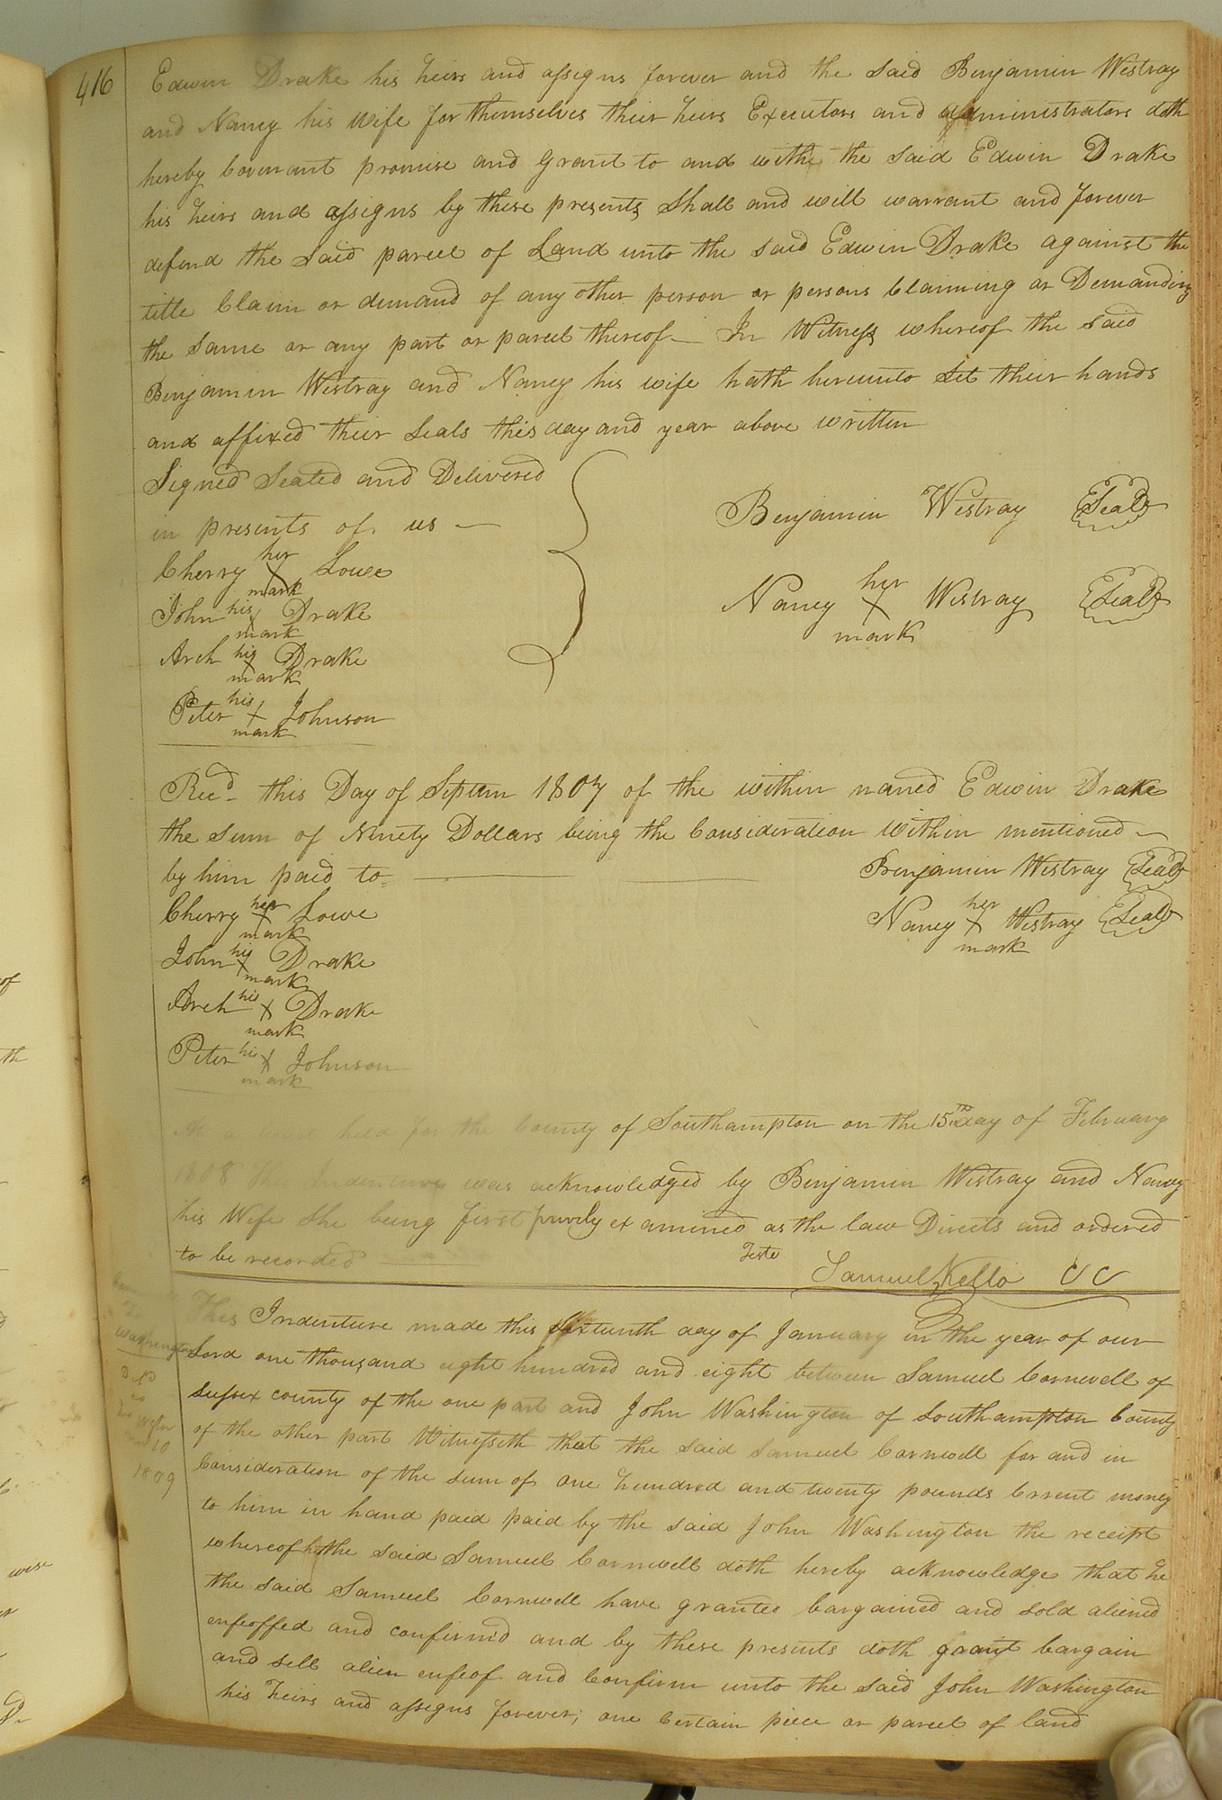 416
Edwin Drake his heirs and assigns forever and the said Benjamin Westray
and Nancy his wife for themselves their heirs Executors and administrators doth
hereby Covenant promise and grant to and with the said Edwin Drake
his heirs and assigns by these presents Shall and will warrant and forever
defend the said parcel of Land unto the said Edwin Drake against the
title Claim or demand of any other person or persons Claiming or Demanding
the same or any part or parcel thereof — In Witness whereof the said
Benjamin Westray and Nancy his wife hath hereunto Set their hands
and affixed their Seals this day and year above written
Signed Sealed and Delivered
in presents of us —
Benjamin Westray Seal
Cherry her X mark Lowe
Nancy her X mark Westray Seal
John his X mark Drake
Arch his X mark Drake
Peter his X mark Johnson
Recd this Day of Septem 1807 of the within named Edwin Drake
the Sum of Ninety Dollars being the Consideration within mentioned —
by him paid to
Benjamin Westray Seal
Cherry her X mark Lowe
Nancy her X mark Westray Seal
John his X mark Drake
Arch his X mark Drake
Peter his X mark Johnson
At a held for the County of Southampton on the 15th day of February
1808 This Indenture was acknowledged by Benjamin Westray and Nancy
his Wife She being first privily examined as the law Directs and ordered
to be recorded
Teste
Samuel Kello CC
This Indenture made this Sixteenth day of January in the year of our
Lord one thousand eight hundred and eight between Samuel Cornwell of
Sussex county of the one part and John Washington of Southampton County
of the other part Witnesseth that the said Samuel Cornwell for and in
Consideration of the sum of one hundred and twenty pounds Crrent money
to him in hand paed paid by the said John Washington the receipt
whereof the said Samuel Cornwell doth hereby acknowledge that he
the said Samuel Cornwell have granted bargained and sold aliened
enfeoffed and confirm'd and by these presents doth grant bargain
and sell alien enfeof and Confirm unto the said John Washington
his heirs and assigns forever; one Certain piece or parcel of land
To
Washington
Deld
10
1809
of
th